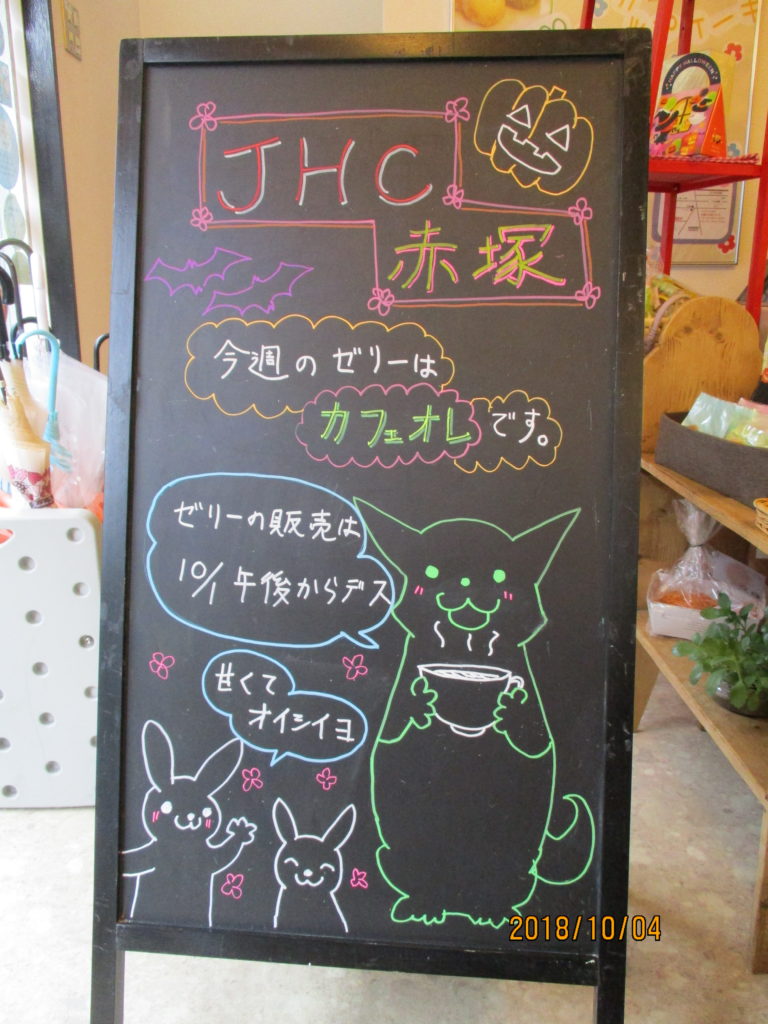 JHC
赤塚
今週のゼリーは
カフェオレです。
ゼリーの販売は
10/1 午後からデス
甘くて
オイシイヨ
2018/10/04